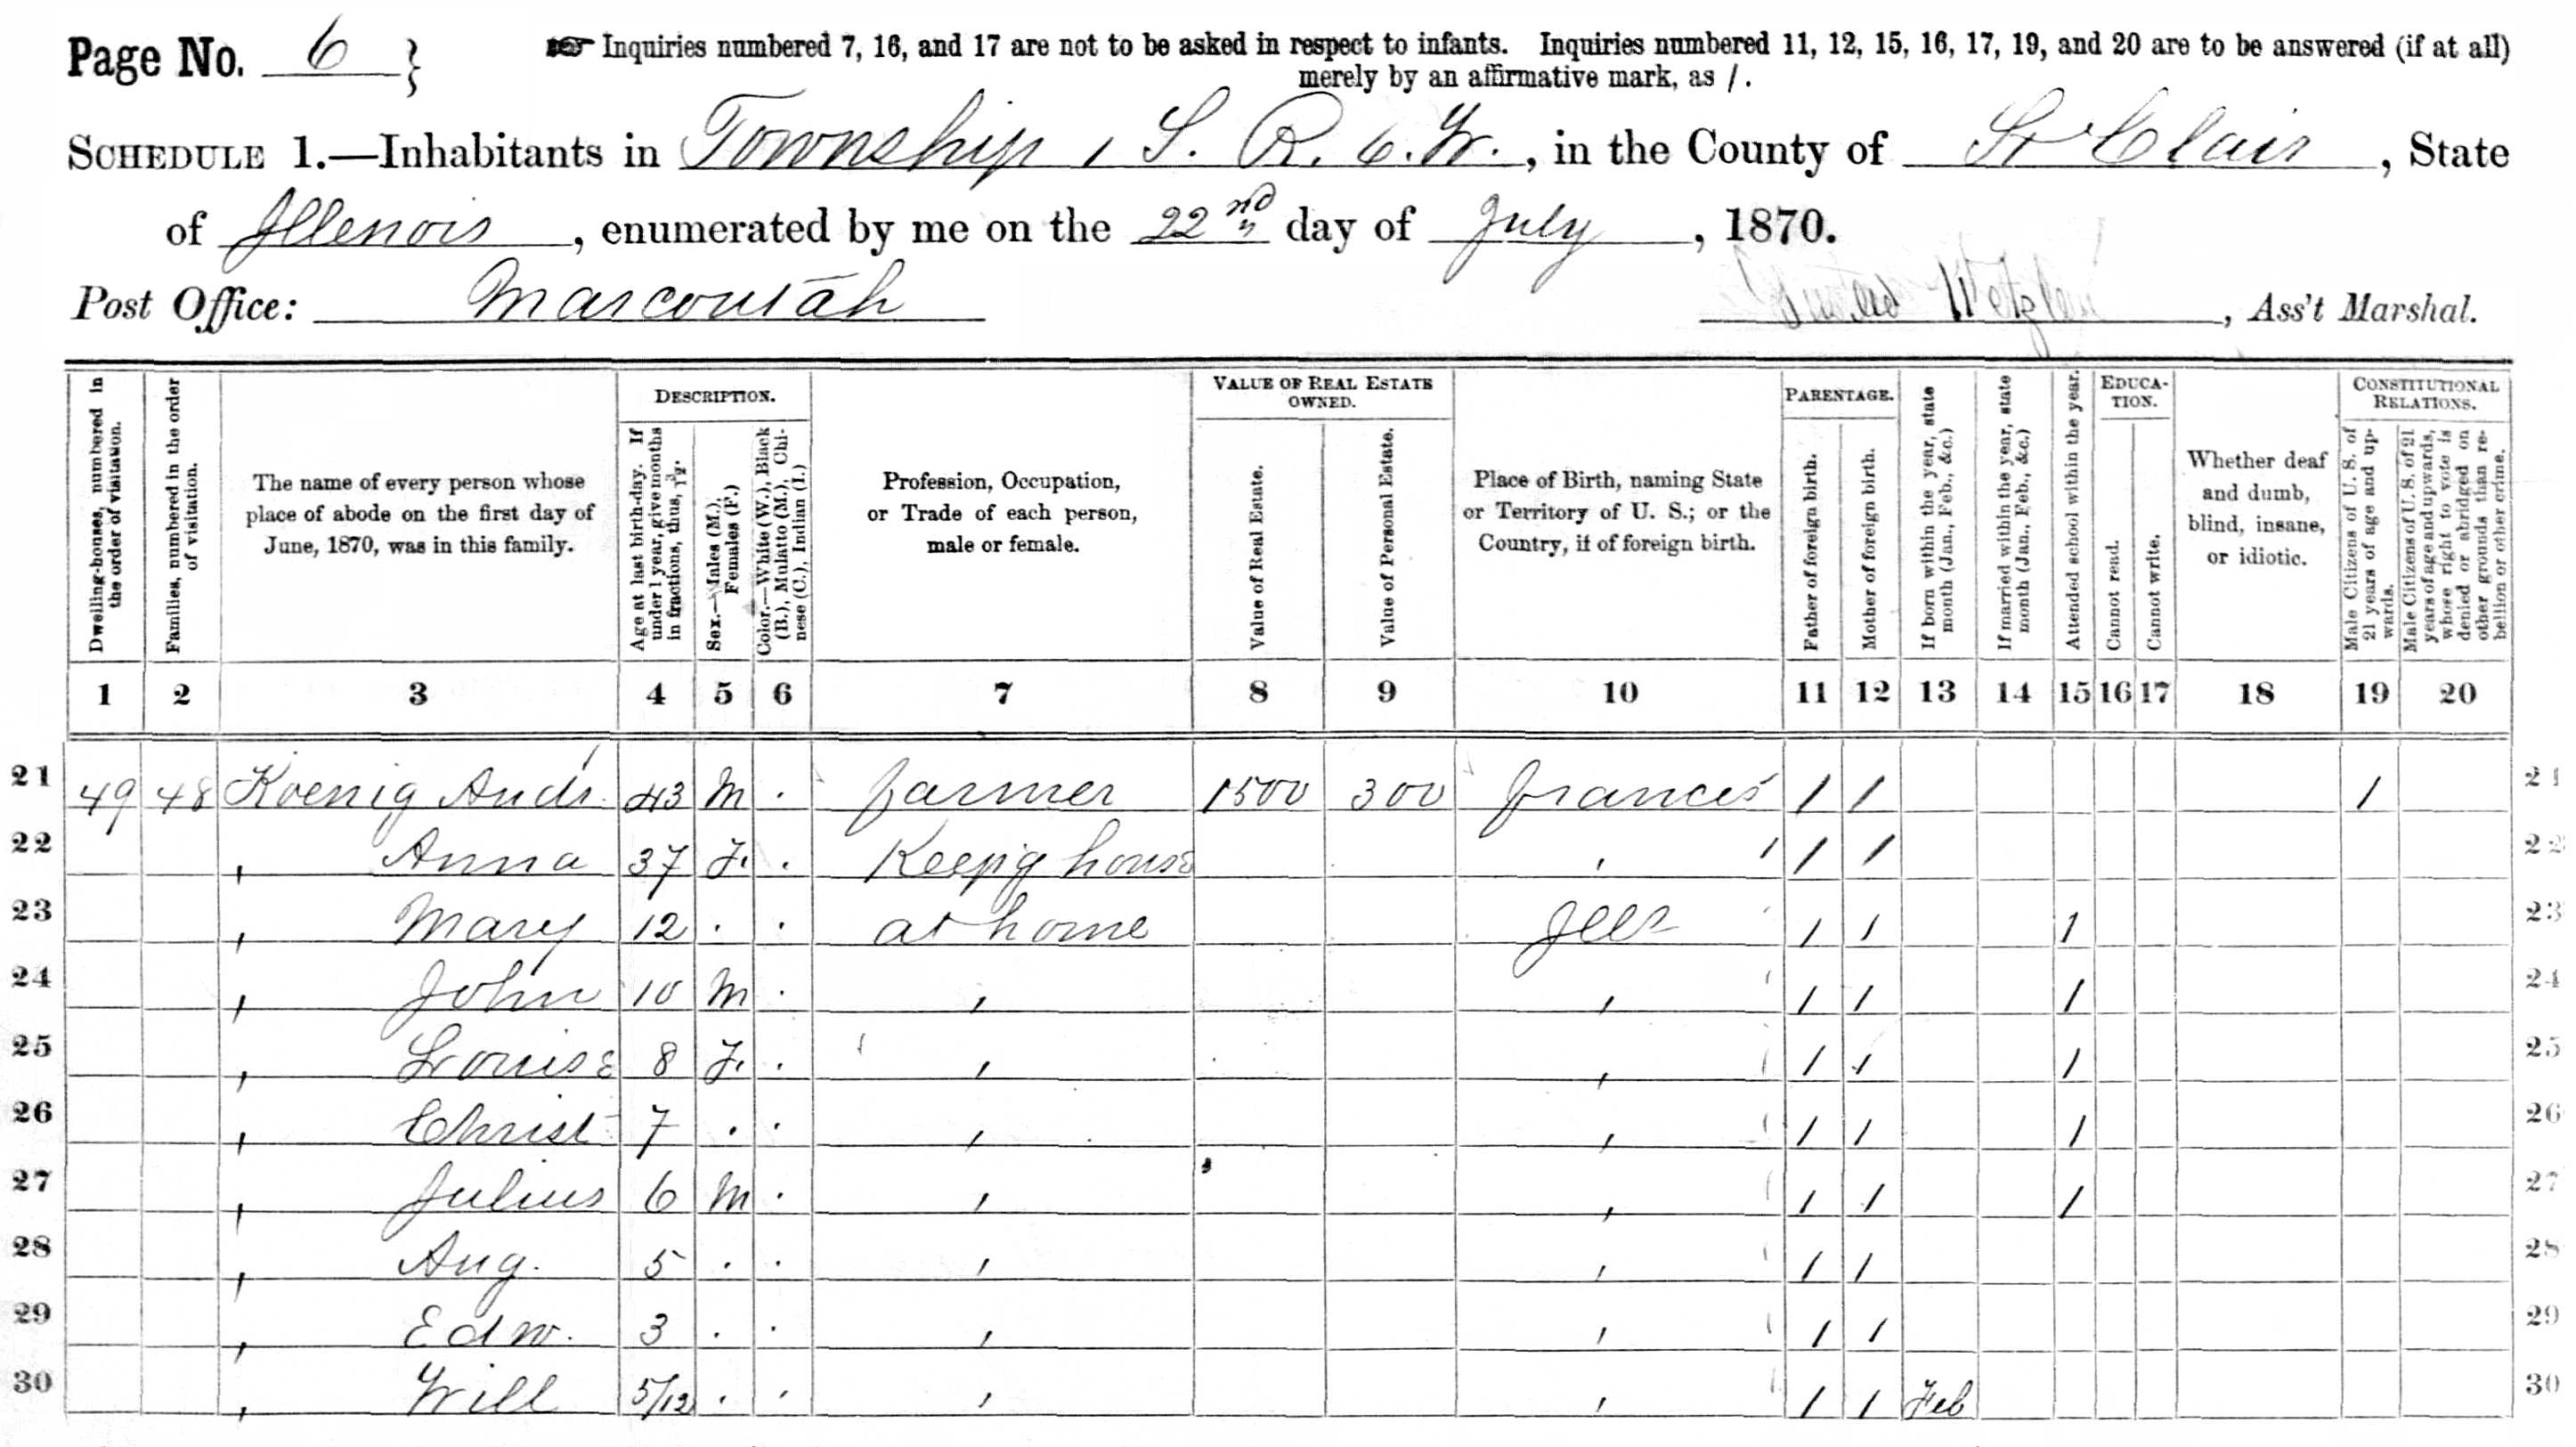 Page No. 6 }
☞ Inquiries numbered 7, 16, and 17 are not to be asked in respect to infants. Inquiries numbered 11, 12, 15, 16, 17, 19, and 20 are to be answered (if at all)
merely by an affirmative mark, as /.
SCHEDULE 1.—Inhabitants in Township 1 S. R. 6. W., in the County of St Clair, State
of Illenois, enumerated by me on the 22nd day of July, 1870.
Post Office: Mascoutah
, Ass't Marshal.
Dwelling-houses, numbered in the order of visitation.
Families, numbered in the order of visitation.
The name of every person whose place of abode on the first day of June, 1870, was in this family.
DESCRIPTION.
Age at last birth-day. If under 1 year, give months in fractions, thus, 3/12.
Sex.—Males (M.), Females (F.)
Color.—White (W.), Black (B.), Mulatto (M.), Chinese (C.), Indian (I.)
Profession, Occupation, or Trade of each person, male or female.
VALUE OF REAL ESTATE OWNED.
Value of Real Estate.
Value of Personal Estate.
Place of Birth, naming State or Territory of U. S.; or the Country, if of foreign birth.
PARENTAGE.
Father of foreign birth.
Mother of foreign birth.
If born within the year, state month (Jan., Feb., &c.)
If married within the year, state month (Jan., Feb., &c.)
Attended school within the year.
EDUCATION.
Cannot read.
Cannot write.
Whether deaf and dumb, blind, insane, or idiotic.
CONSTITUTIONAL RELATIONS.
Male Citizens of U. S. of 21 years of age and upwards.
Male Citizens of U. S. of 21 years of age and upwards, whose right to vote is denied or abridged on other grounds than rebellion or other crime.
1 2 3 4 5 6 7 8 9 10 11 12 13 14 15 16 17 18 19 20
21 49 48 Koenig Andr. 43 M . farmer 1500 300 france / / / 21
22 , Anna 37 F. . Keep'g house , / / 22
23 , Mary 12 . . at home Ills / / / 23
24 , John 10 M . , , / / / 24
25 , Louise 8 F. . , , / / / 25
26 , Christ 7 . . , , / / / 26
27 , Julius 6 M . , , / / / 27
28 , Aug. 5 . . , , / / 28
29 , Edw. 3 . . , , / / 29
30 , Will 5/12 . . , , / / Feb 30